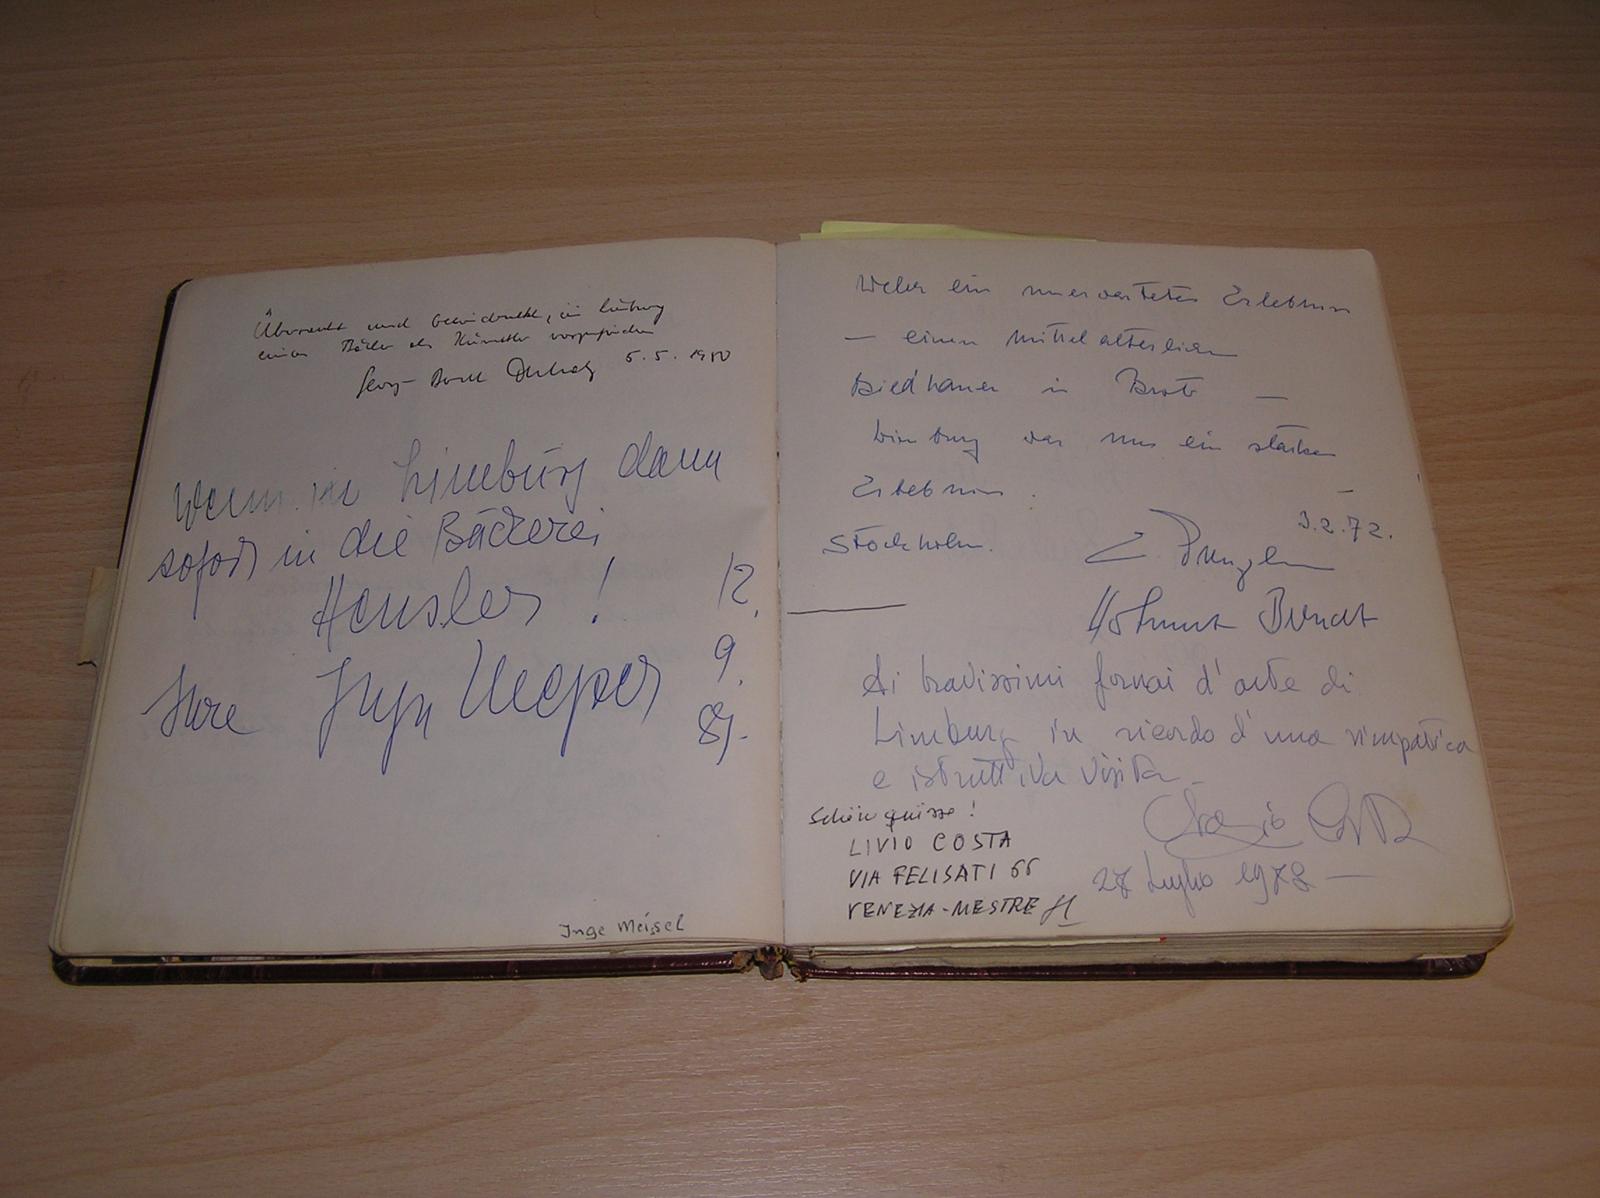 Überrascht und beeindruckt, in Limburg
einen Bäcker als Künstler vorzufinden
5.5.1980
Wenn in Limburg dann
sofort in die Bäckerei
Hensler!
Ihre Inge Meysel
12.
9.
81.
Inge Meisel
Welch ein unerwartetes Erlebnis
— einen mittelalterlichen
Bildhauer in Brot —
Limburg war uns ein starkes
Erlebnis.
Stockholm. 3.2.72.
Helmut
Ai bravissimi fornai d'arte di
Limburg in ricordo d'una simpatica
e istruttiva visita
Schöne grüsse!
LIVIO COSTA
VIA FELISATI 66
VENEZIA-MESTRE
27 Luglio 1978 —